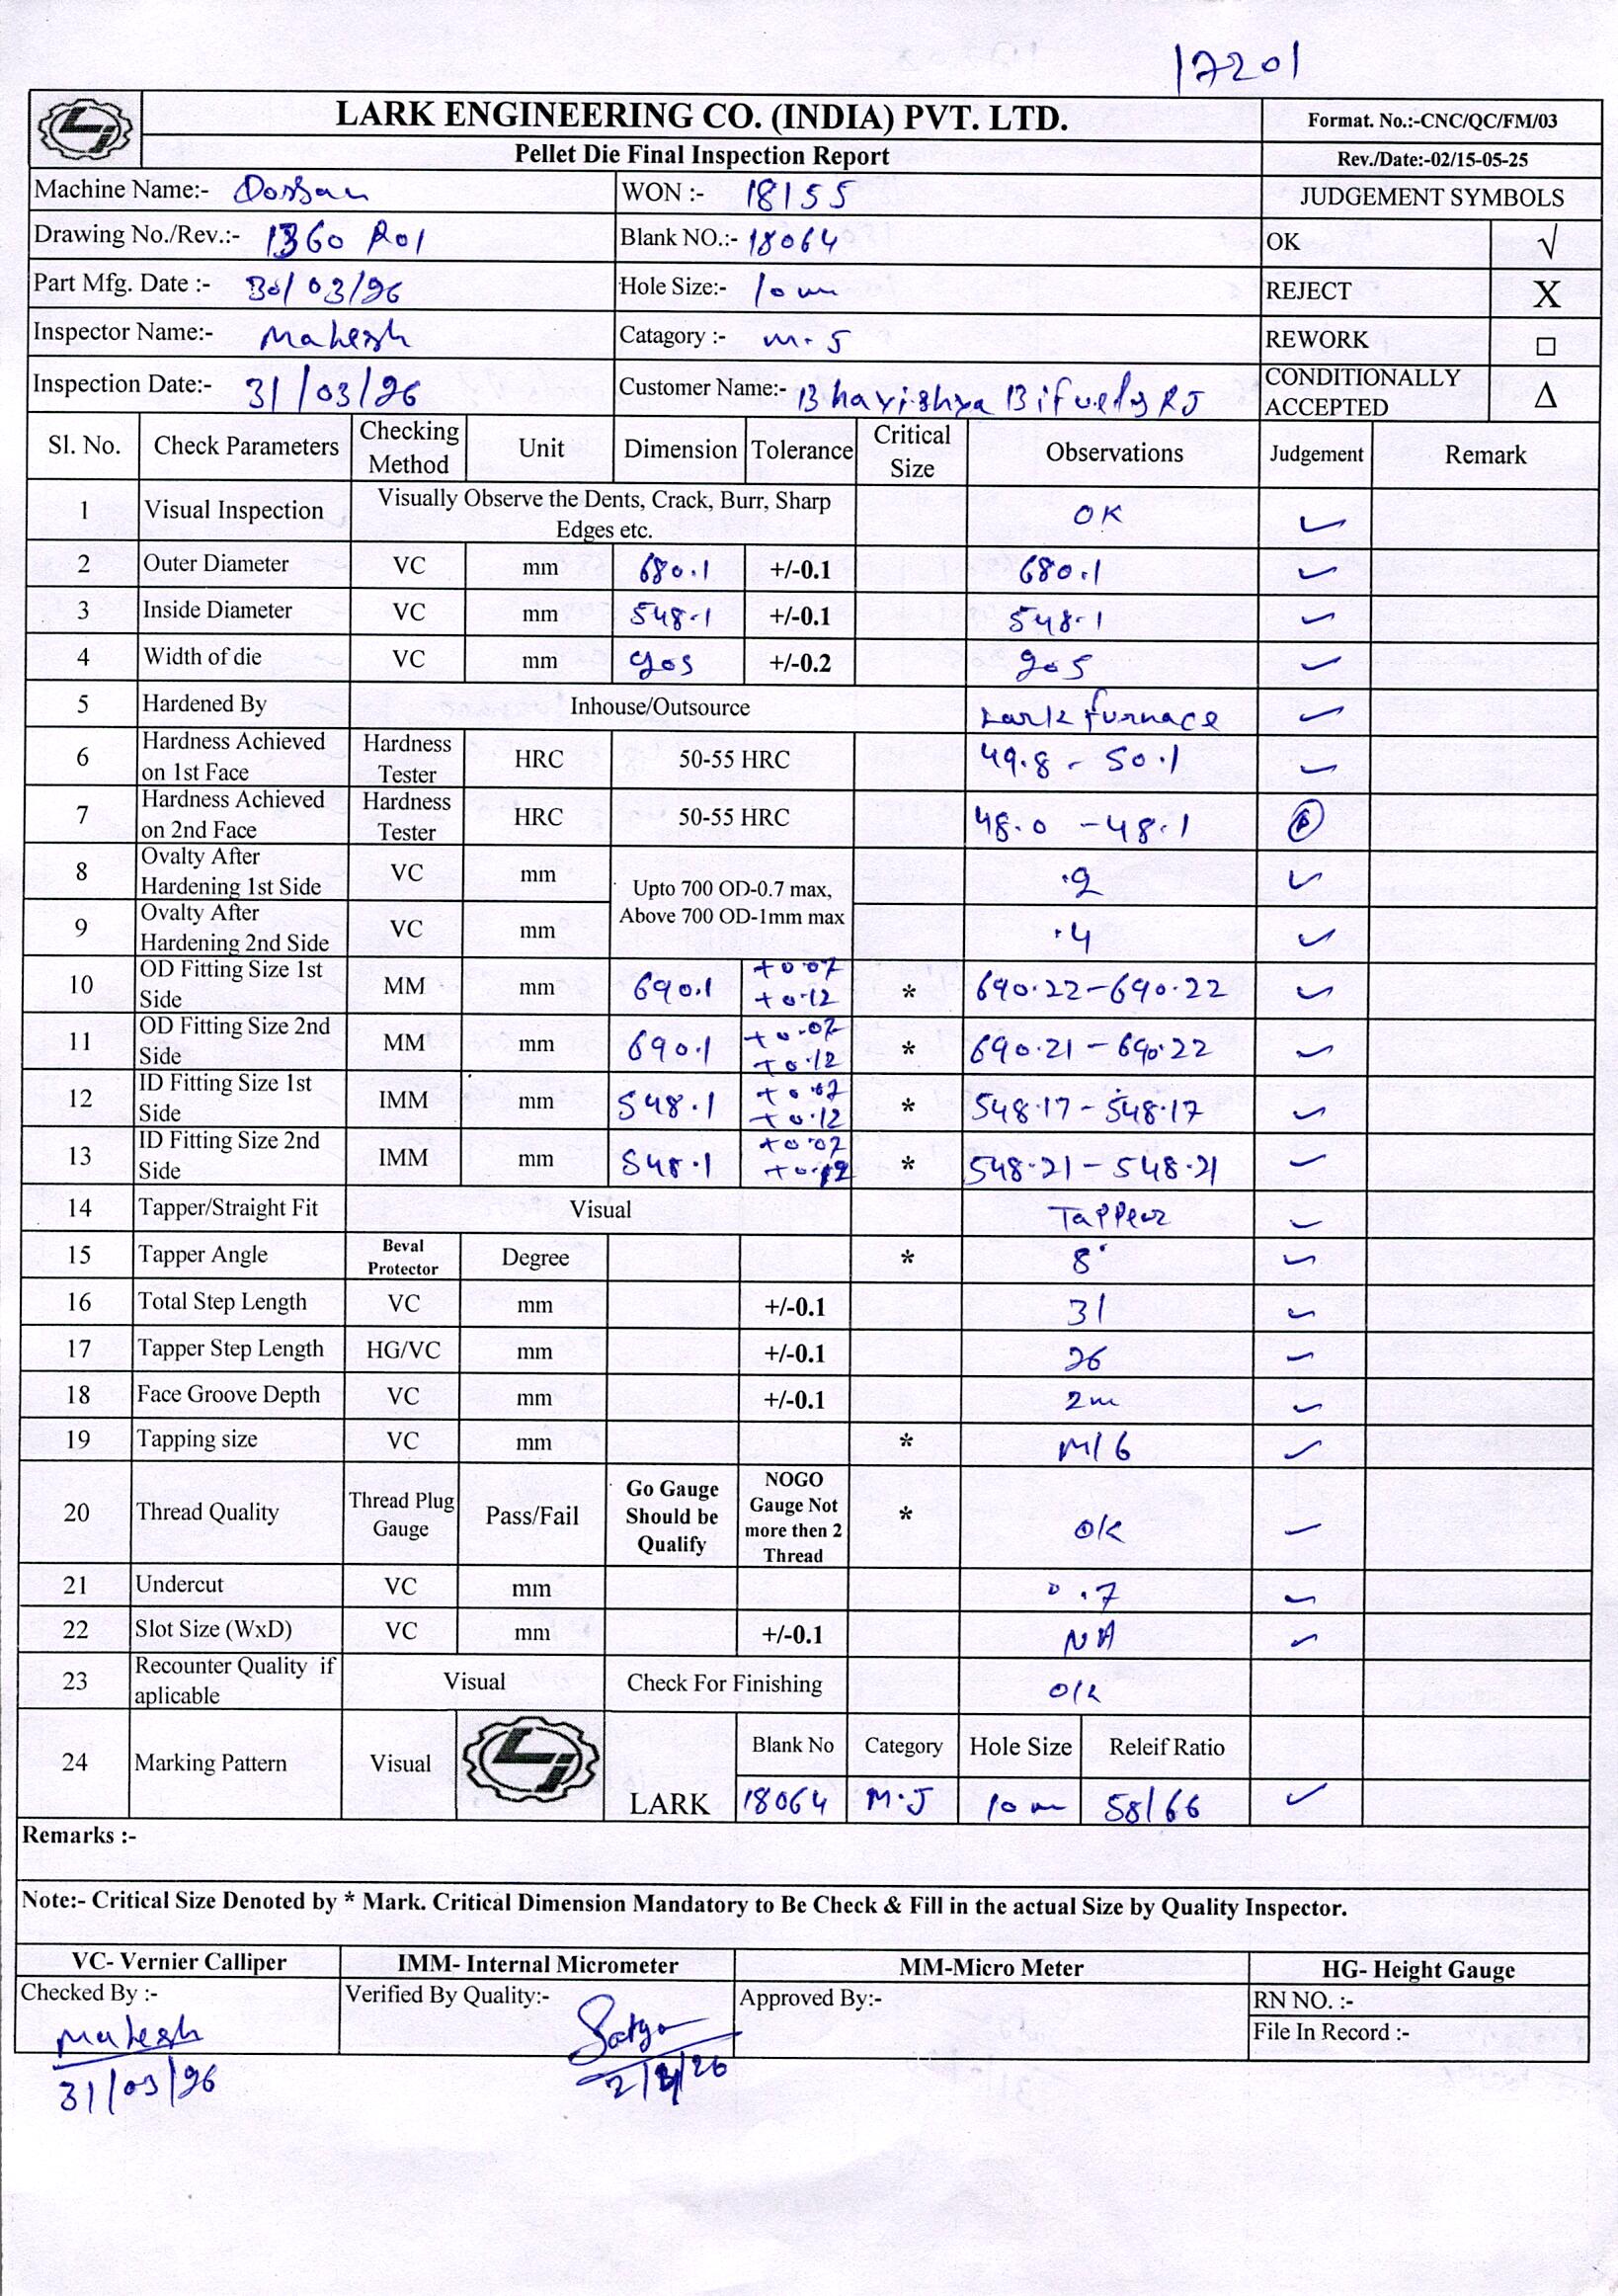 17201
LARK ENGINEERING CO. (INDIA) PVT. LTD.
Format. No.:-CNC/QC/FM/03
Pellet Die Final Inspection Report
Rev./Date:-02/15-05-25
Machine Name:-
WON :- 18155
JUDGEMENT SYMBOLS
Drawing No./Rev.:- 1360 R01
Blank NO.:- 18064
OK √
Part Mfg. Date :- 30/03/26
Hole Size:- 10 m
REJECT X
Inspector Name:- Mahesh
Catagory :-
REWORK □
Inspection Date:- 31/03/26
Customer Name:- Bhavishya Bifuels RJ
CONDITIONALLY ACCEPTED Δ
Sl. No. Check Parameters Checking Method Unit Dimension Tolerance Critical Size Observations Judgement Remark
1 Visual Inspection Visually Observe the Dents, Crack, Burr, Sharp Edges etc. OK ✓
2 Outer Diameter VC mm 680.1 +/-0.1 680.1 ✓
3 Inside Diameter VC mm 548.1 +/-0.1 548.1 ✓
4 Width of die VC mm 205 +/-0.2 205 ✓
5 Hardened By Inhouse/Outsource Lark furnace ✓
6 Hardness Achieved on 1st Face Hardness Tester HRC 50-55 HRC 49.8 - 50.1 ✓
7 Hardness Achieved on 2nd Face Hardness Tester HRC 50-55 HRC 48.0 - 48.1
8 Ovalty After Hardening 1st Side VC mm Upto 700 OD-0.7 max, Above 700 OD-1mm max .2 ✓
9 Ovalty After Hardening 2nd Side VC mm .4 ✓
10 OD Fitting Size 1st Side MM mm 690.1 +0.07 +0.12 * 690.22-690.22 ✓
11 OD Fitting Size 2nd Side MM mm 690.1 +0.07 +0.12 * 690.21-690.22 ✓
12 ID Fitting Size 1st Side IMM mm 548.1 +0.07 +0.12 * 548.17-548.17 ✓
13 ID Fitting Size 2nd Side IMM mm 548.1 +0.07 +0.12 * 548.21-548.21 ✓
14 Tapper/Straight Fit Visual Tapper ✓
15 Tapper Angle Beval Protector Degree * 8° ✓
16 Total Step Length VC mm +/-0.1 31 ✓
17 Tapper Step Length HG/VC mm +/-0.1 26 ✓
18 Face Groove Depth VC mm +/-0.1 2m ✓
19 Tapping size VC mm * M16 ✓
20 Thread Quality Thread Plug Gauge Pass/Fail Go Gauge Should be Qualify NOGO Gauge Not more then 2 Thread * OK ✓
21 Undercut VC mm 0.7 ✓
22 Slot Size (WxD) VC mm +/-0.1 NA ✓
23 Recounter Quality if aplicable Visual Check For Finishing OK
24 Marking Pattern Visual LARK Blank No Category Hole Size Releif Ratio
18064 M.J 10 m 58/66 ✓
Remarks :-
Note:- Critical Size Denoted by * Mark. Critical Dimension Mandatory to Be Check & Fill in the actual Size by Quality Inspector.
VC- Vernier Calliper IMM- Internal Micrometer MM-Micro Meter HG- Height Gauge
Checked By :- Verified By Quality:- Approved By:- RN NO. :-
File In Record :-
Mahesh Satya
31/03/26